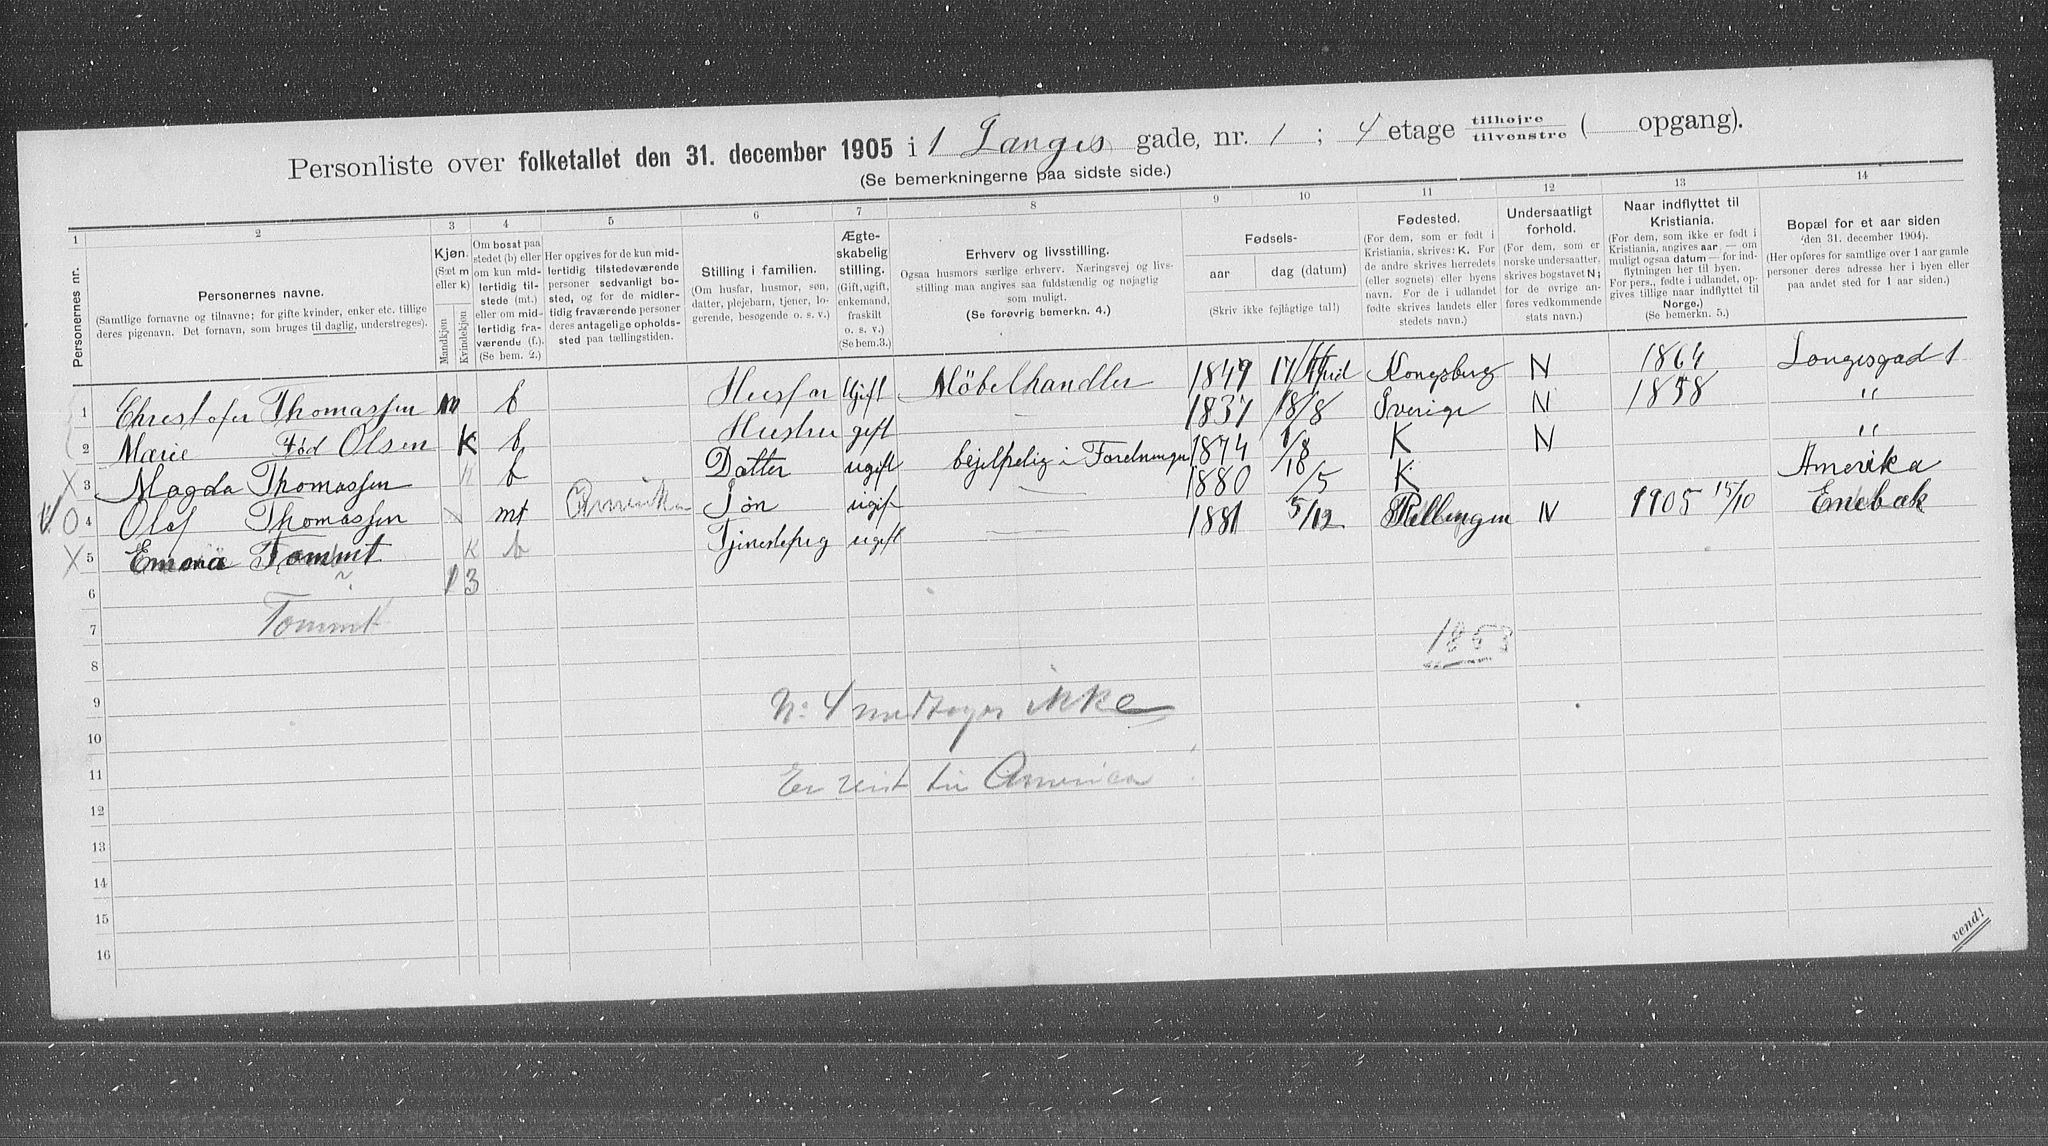 Personliste over folketallet den 31. december 1905 i 1 Langes gade, nr. 1 ; 4 etage tilhøjre tilvenstre ( opgang).
(Se bemerkningerne paa sidste side.)
1 2 3 4 5 6 7 8 9 10 11 12 13 14
Personernes nr.
Personernes navne.
(Samtlige fornavne og tilnavne; for gifte kvinder, enker etc. tillige
deres pigenavn. Det fornavn, som bruges til daglig, understreges).
Kjøn.
(Sæt m
eller k)
Mandkjøn
Kvindekjøn
Om bosat paa
stedet (b) eller
om kun mid-
lertidig til-
stede (mt.)
eller om mid-
lertidig fra-
værende (f.).
(Se bem. 2.)
Her opgives for de kun mid-
lertidig tilstedeværende
personer sedvanligt bo-
sted, og for de midler-
tidig fraværende personer
deres antagelige opholds-
sted paa tællingstiden.
Stilling i familien.
(Om husfar, husmor, søn,
datter, plejebarn, tjener, lo-
gerende, besøgende o. s. v.)
Ægte-
skabelig
stilling.
(Gift, ugift,
enkemand,
fraskilt
o. s. v.)
(Se bem.3.)
Erhverv og livsstilling.
Ogsaa husmors særlige erhverv. Næringsvej og livs-
stilling maa angives saa fuldstændig og nøjagtig
som muligt.
(Se forøvrig bemerkn. 4.)
Fødsels-
aar
dag (datum)
(Skriv ikke fejlagtige tal!)
Fødested.
(For dem, som er født i
Kristiania, skrives: K. For
de andre skrives herredets
(eller sognets) eller byens
navn. For de i udlandet
fødte skrives landets eller
stedets navn.)
Undersaatligt
forhold.
(For dem, som er
norske undersaatter,
skrives bogstavet N;
for de øvrige an-
føres vedkommende
stats navn.)
Naar indflyttet til
Kristiania.
(For dem, som ikke er født i
Kristiania, angives aar, — om
muligt ogsaa datum — for ind-
flytningen her til byen.
For pers., fødte i udlandet, op-
gives tillige naar indflyttet til
Norge.)
(Se bemerkn. 5.)
Bopæl for et aar siden
(den 31. december 1904).
(Her opføres for samtlige over 1 aar gamle
personer deres adresse her i byen eller
paa andet sted for 1 aar siden.)
1 Christofer Thomassen m b Husfar Gift Møbelhandler 1849 17/ Kongsberg N 1864 Langesgad 1
2 Marie Fød Olsen K b Hustru gift — 1837 18/8 Sverige N 1858 "
X 3 Magda Thomassen k b Datter ugift bejelpelig i Foretninger 1874 1/8 K N "
O 4 Olaf Thomassen x mt Amerika Søn ugift — 1880 10/5 K Amerika
X 5 Emma Tommt k b Tjenestepig ugift — 1881 5/12 N 1905 15/10 Enebak
6 1 3
7 Tommt
1853
8
9 N: 4 medtages ikke
10
11 Er reist til America
12
13
14
15
16
vend!